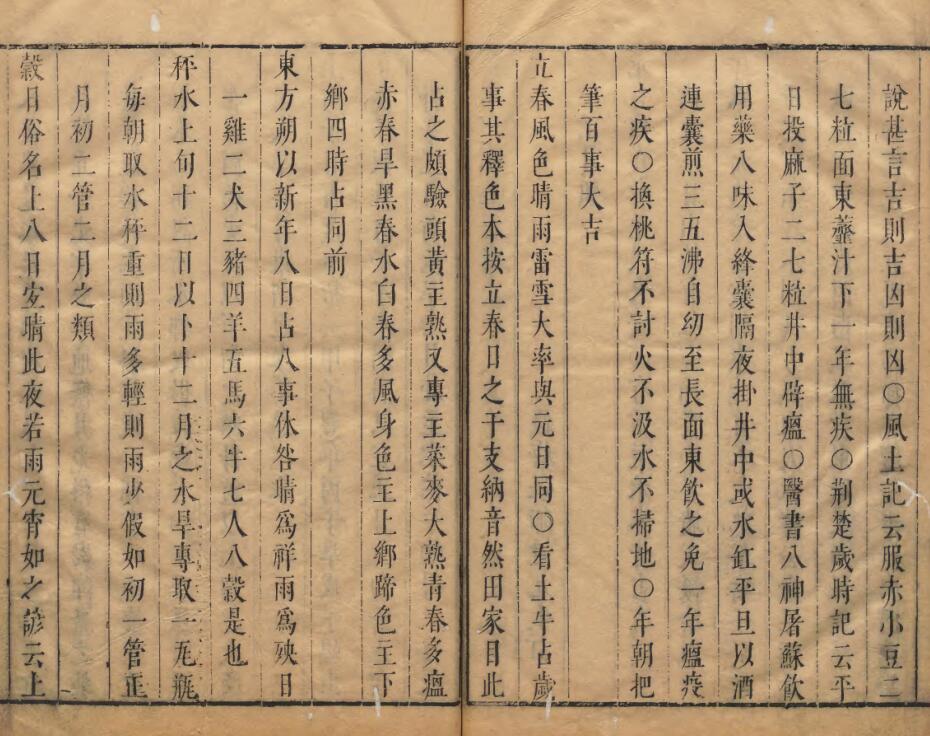 說甚言吉則吉凶則凶○風土記云服赤小豆二
七粒面東虀汁下一年無疾○荆楚歲時記云平
日投麻子二七粒井中辟瘟○醫書八神屠蘇飲
用藥八味入絳囊隔夜掛井中或水缸平旦以酒
連囊煎三五沸自幼至長面東飲之免一年瘟疫
之疾○換桃符不討火不汲水不掃地○年朝把
筆百事大吉
立春風色晴雨雷雪大率與元日同○看土牛占歲
事其釋色本按立春日之干支納音然田家目此
占之頗驗頭黃主熟又專主菜麥大熟青春多瘟
赤春旱黑春水白春多風身色主上鄉蹄色主下
鄉四時占同前
東方朔以新年八日占八事休咎晴爲祥雨爲殃日
一雞二犬三豬四羊五馬六牛七人八穀是也
秤水上旬十二日以卜十二月之水旱專取一瓦瓶
每朝取水秤重則雨多輕則雨少假如初一管正
月初二管二月之類
穀日俗名上八日宜晴此夜若雨元宵如之諺云上